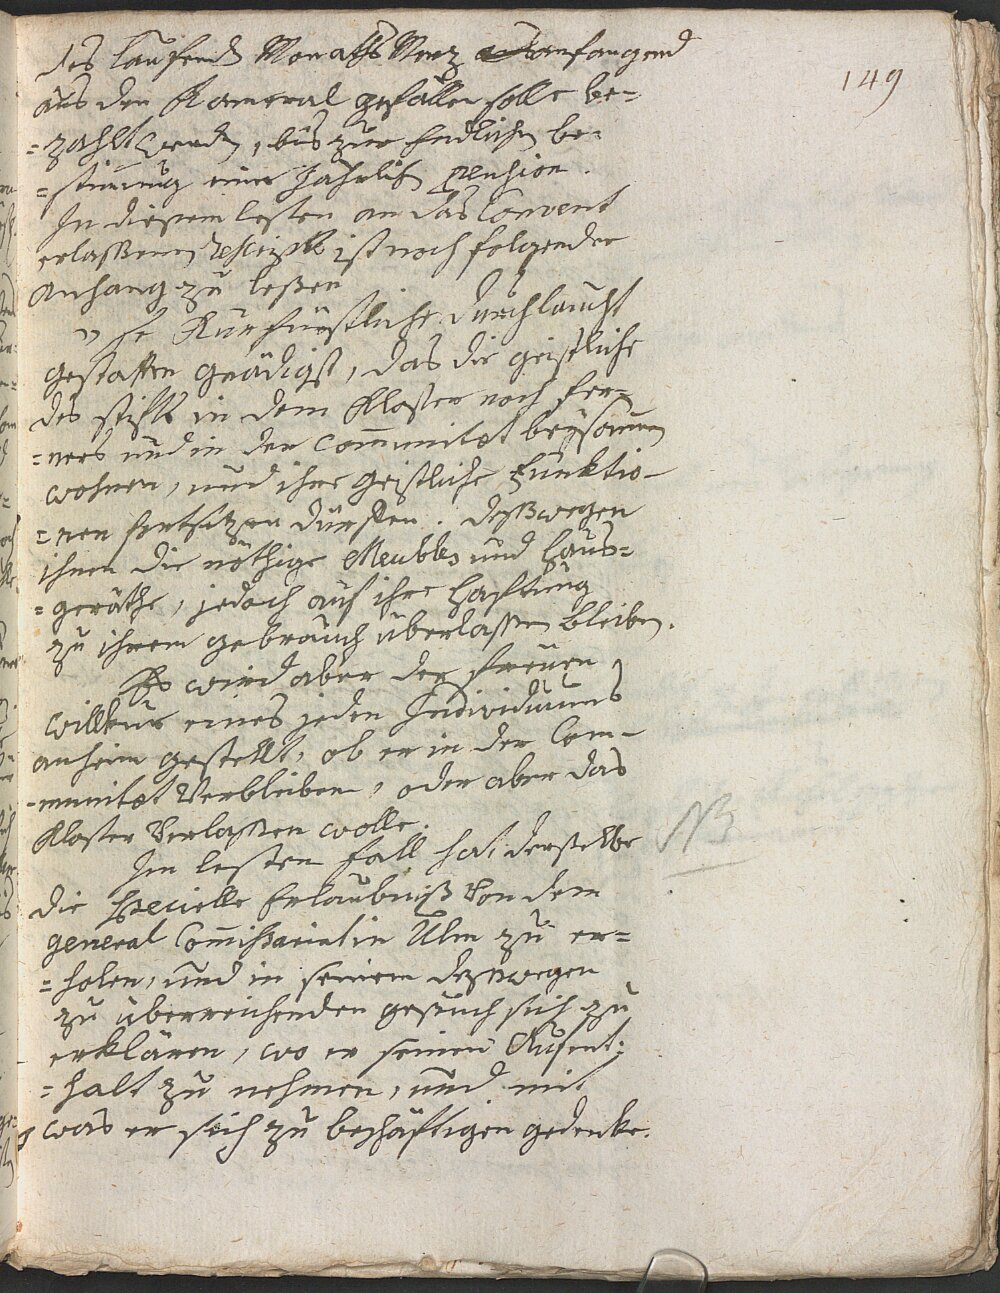 des laufend. Monaths Merz anfangend
149
aus den Kameral gefällen solle be-
=zahlt werden, bis zur endlichen be-
=stimung einer Jährlich. pension.
In diesem lesten an das Convent
erlaßenen rescript ist noch folgender
Anhang zu leßen
" Se Kurfürstliche Durchlaucht
gestatten gnädigst, das die geistliche
des stifts in dem Kloster noch fer-
=ners und in der Communitæt beÿsamen
wohnen, und ihre geistliche Funktio-
=nen fortsetzen dürften. deßwegen
ihnen die nöthige Meubles und Haus=
=geräthe, jedoch auf ihre Haftung
zu ihrem gebrauch überlaßen bleiben.
Es wird aber der freÿen
willkur eines jeden Individuums
anheim gestellt, ob er in der Com-
-munitæt Verbleiben, oder aber das
Kloster Verlaßen wolle.
NB
Im lesten fall hat derselbe
die specielle Erlaubniß Von dem
general Commißariat in Ulm zu er=
=holen, und in seinem deßwegen
zu überreichenden gesuch sich zu
erklären, wo er seinen Aufent:
=halt zu nehmen, und mit
was er sich zu beschäftigen gedenke.